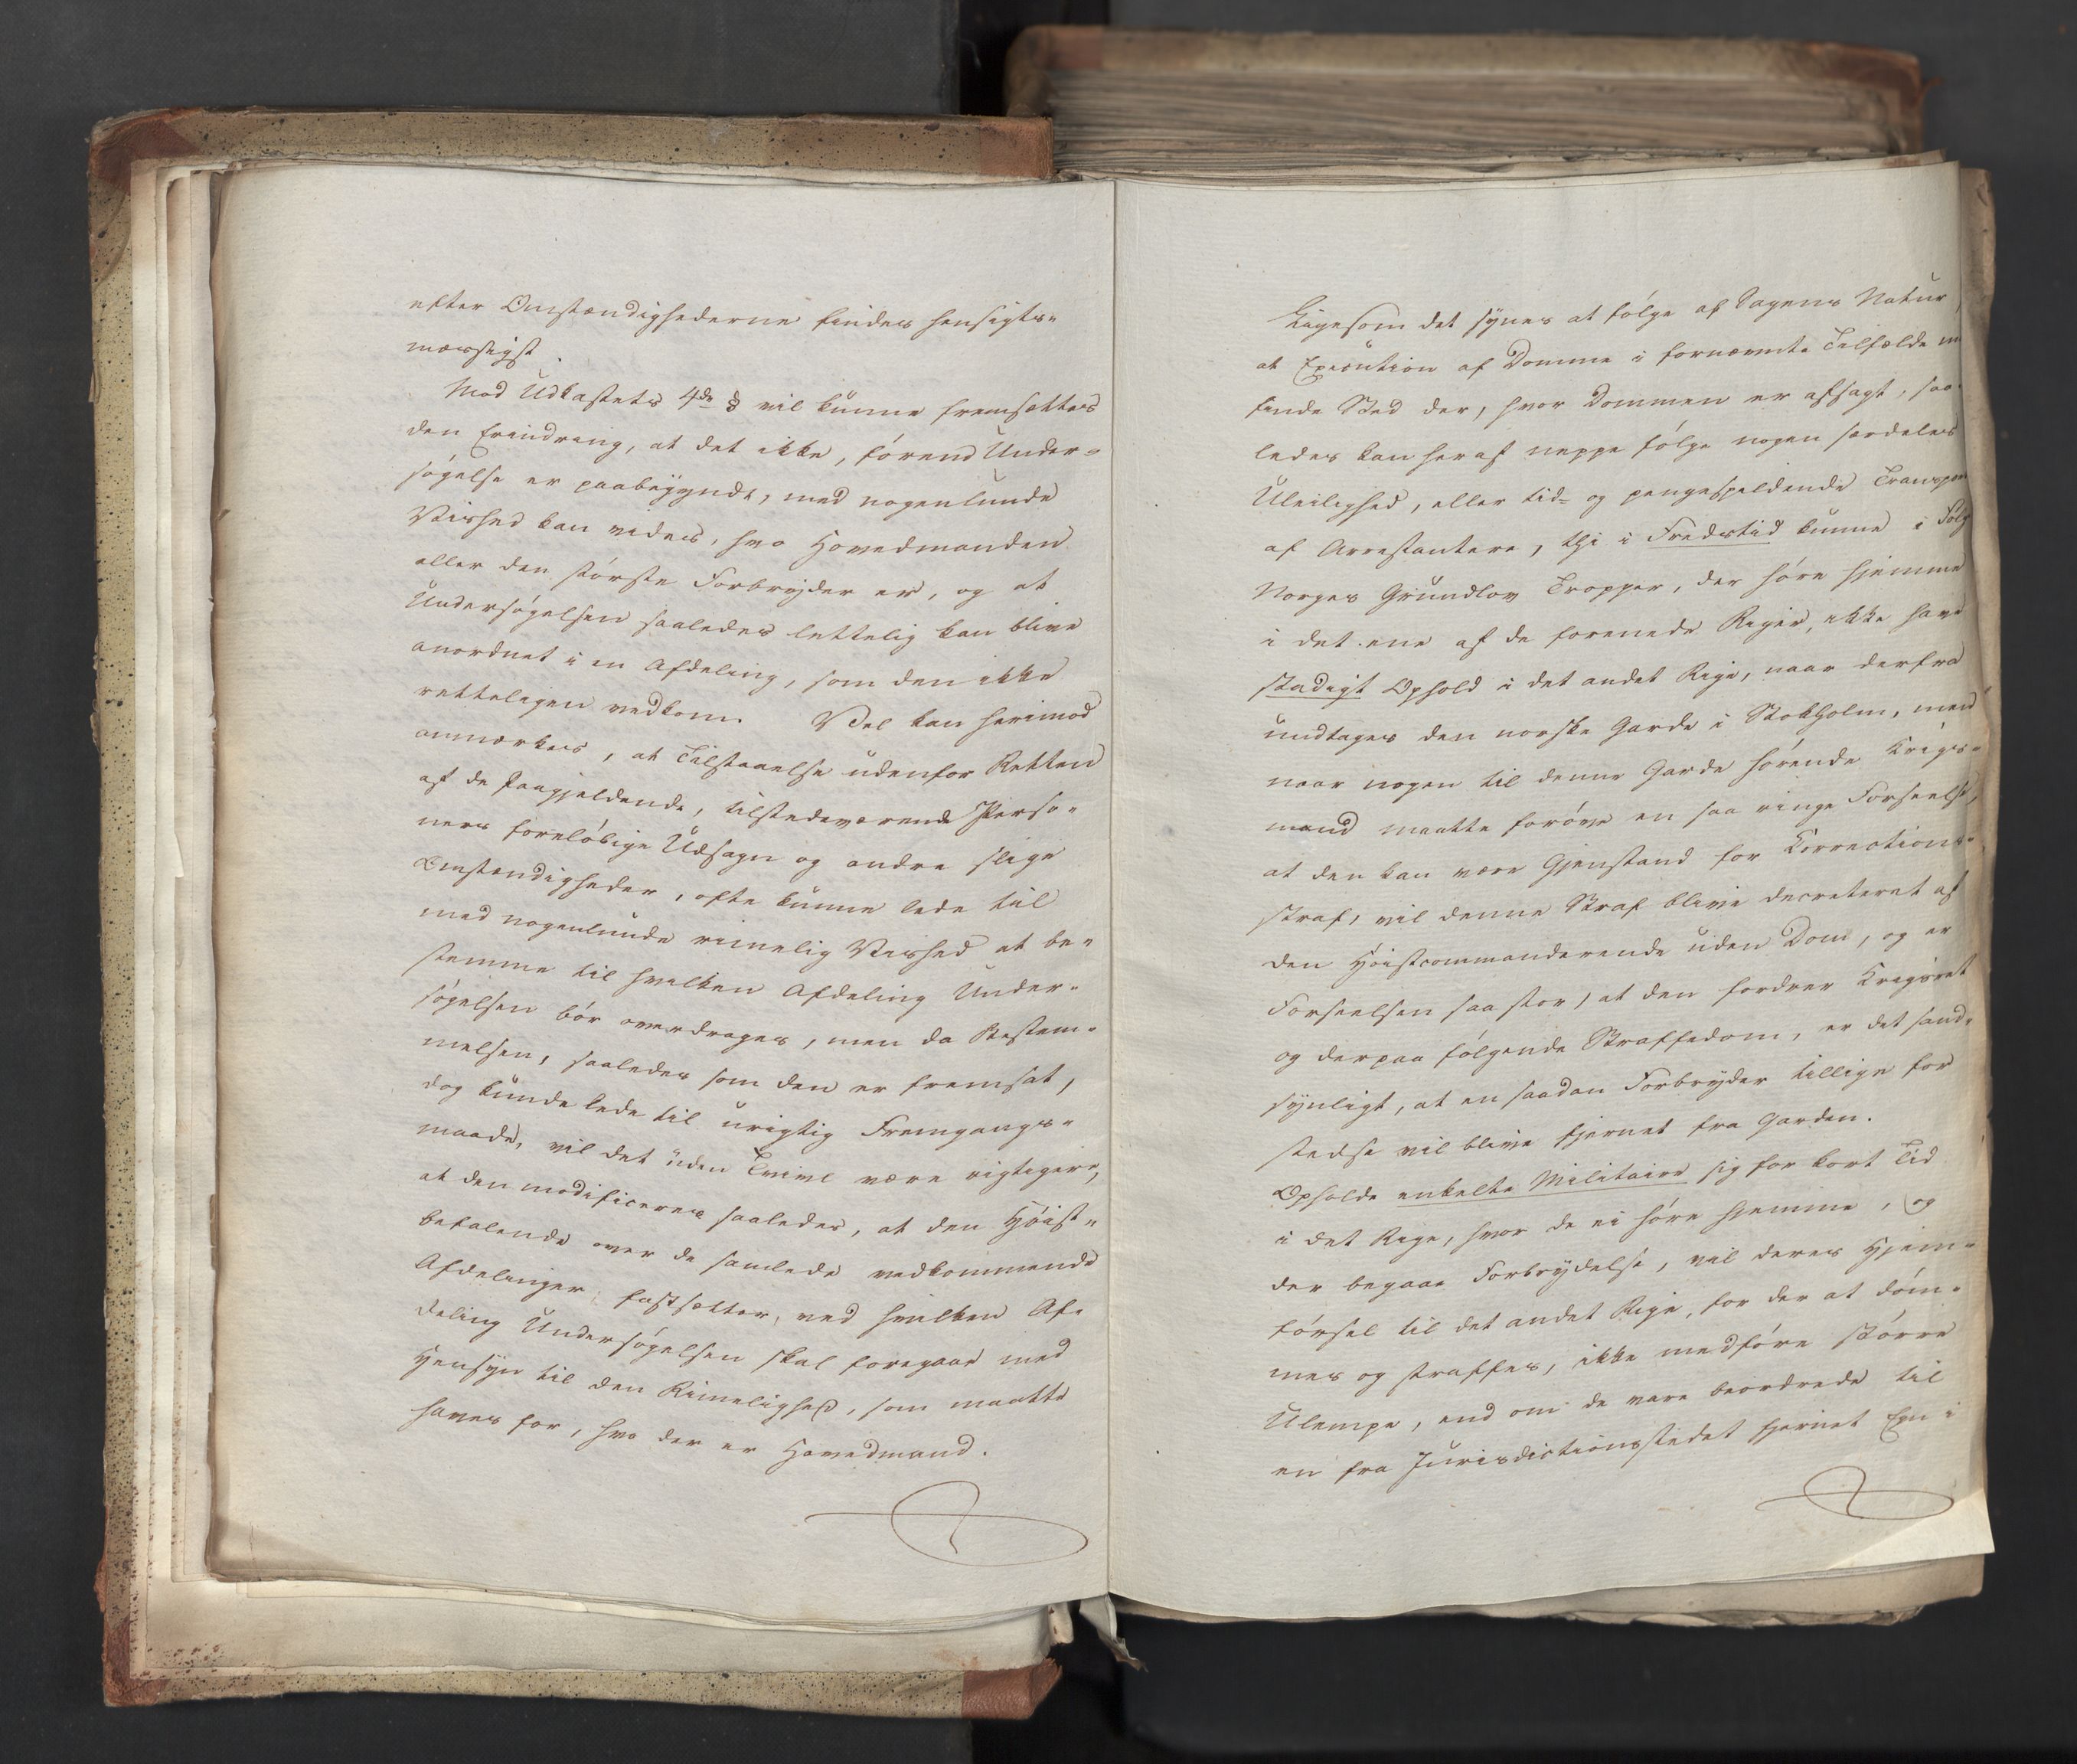 efter Omstændighederne findes hensigts-
mæssigst.
Mod Udkastets 4de § vil kunne fremsættes
den Erindring, at det ikke, förend Under-
søgelse er paabegyndt, med nogenlunde
Vished kan vides, hvo Hovedmanden
eller den störste Forbryder er, og at
Undersögelsen saaledes lettelig kan blive
anordnet i en Afdeling, som den ikke
retteligen vedkom. Vel kan herimod
anmærkes, at Tilstaaelse udenfor Retten
af de Paagjeldende, tilstedeværende Perso-
ners forelöbige Udsagn og andre slige
Omstændigheder, ofte kunne lede til
med nogenlunde rimelig Vished at be-
stemme til hvilken Afdeling Under-
sögelsen bör overdrages, men da Bestem-
melsen, saaledes som den er fremsat,
dog kunde lede til urigtig Fremgangs-
maade, vil det uden Tvivl være rigtigere,
at den modificeres saaledes, at den Höist-
befalende over de samlede vedkommende
Afdelinger fastsætter, ved hvilken Af-
deling Undersögelsen skal foregaae med
Hensyn til den Rimelighed, som maatte
haves for, hvo der er Hovedmand.
Ligesom det synes at fölge af Sagens Natur,
at Execution af Domme i fornævnte Tilfælde
finde Sted der, hvor Dommen er afsagt, saa-
ledes kan heraf neppe fölge nogen særdeles
Uleilighed, eller tid- og pengespildende
af Arrestantere, thi i Fredstid kunne i
Norges Grundlov Tropper, der höre hjemme
i det ene af de forenede Riger, ikke have
stadigt Ophold i det andet Rige, naar derfra
undtages den norske Garde i Stokholm, men
naar nogen til denne Garde hörende Krigs-
mand maatte foröve en saa ringe Forseelse,
at den kan være Gjenstand for Corrections-
straf, vil denne Straf blive decreteret af
den Höistcommanderende uden Dom, og er
Forseelsen saa stor, at den fordrer Krigsret
og derpaa fölgende Straffedom, er det sand-
synligt, at en saadan Forbryder tillige for
stedse vil blive fjernet fra Garden.
Opholde enkelte Militaire sig for kort Tid
i det Rige, hvor de ei höre hjemme, og
der begaae Forbrydelse, vil deres Hjem-
försel til det andet Rige, for der at döm-
mes og straffes, ikke medföre större
Ulempe, end om de vare beordrede til
en fra Jurisdictionsstedet fjernet